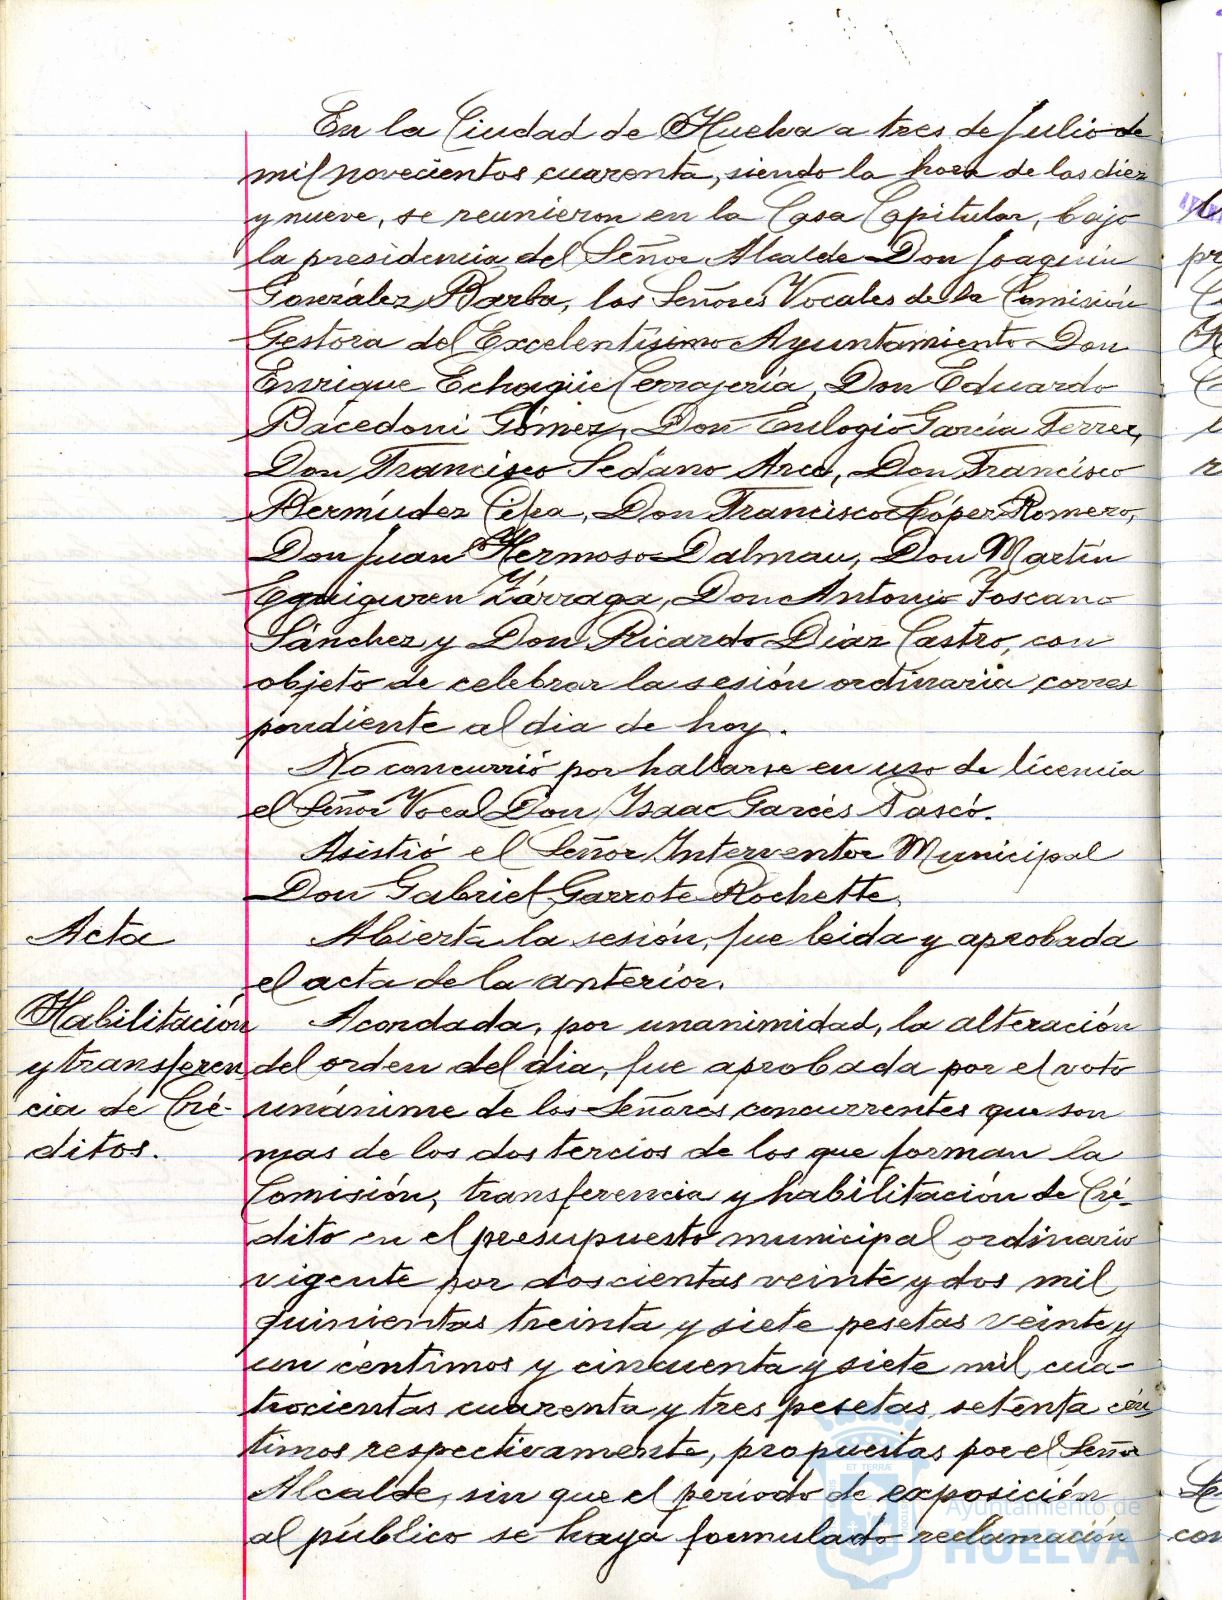 En la Ciudad de Huelva a tres de Julio de
mil novecientos cuarenta, siendo la hora de las diez
y nueve, se reunieron en la Casa Capitular, bajo
la presidencia del Señor Alcalde Don Joaquín
González Barba, los Señores Vocales de la Comisión
Gestora del Excelentísimo Ayuntamiento Don
Enrique Echagüe Cerrajería, Don Eduardo
Bacedoni Gómez, Don Eulogio García Ferrer,
Don Francisco Sedano Arce, Don Francisco
Bermúdez, Don Francisco López Romero,
Don Juan Hermoso Dalmau, Don Martín
Eguiguren Zárraga, Don Antonio Toscano
Sánchez y Don Ricardo Díaz Castro, con
objeto de celebrar la sesión ordinaria corres
pondiente al dia de hoy.
No concurrió por hallarse en uso de licencia
el Señor Vocal Don Isaac Garcés Tascó.
Asistió el Señor Interventor Municipal
Don Gabriel Garrote Rochette.
Acta
Abierta la sesión, fue leida y aprobada
el acta de la anterior.
Habilitación
y transferen
cia de Cré-
ditos.
Acordada, por unanimidad, la alteración
del orden del dia, fue aprobada por el voto
unánime de los Señores concurrentes que son
mas de los dos tercios de los que forman la
Comisión, transferencia y habilitación de Cré-
dito en el presupuesto municipal ordinario
vigente por doscientas veinte y dos mil
quinientas treinta y siete pesetas veinte y
un céntimos y cincuenta y siete mil cua-
trocientas cuarenta y tres pesetas setenta cén
timos respectivamente, propuestas por el Señor
Alcalde, sin que el período de exposición
al público se haya formulado reclamación
Ayuntamiento de
HUELVA